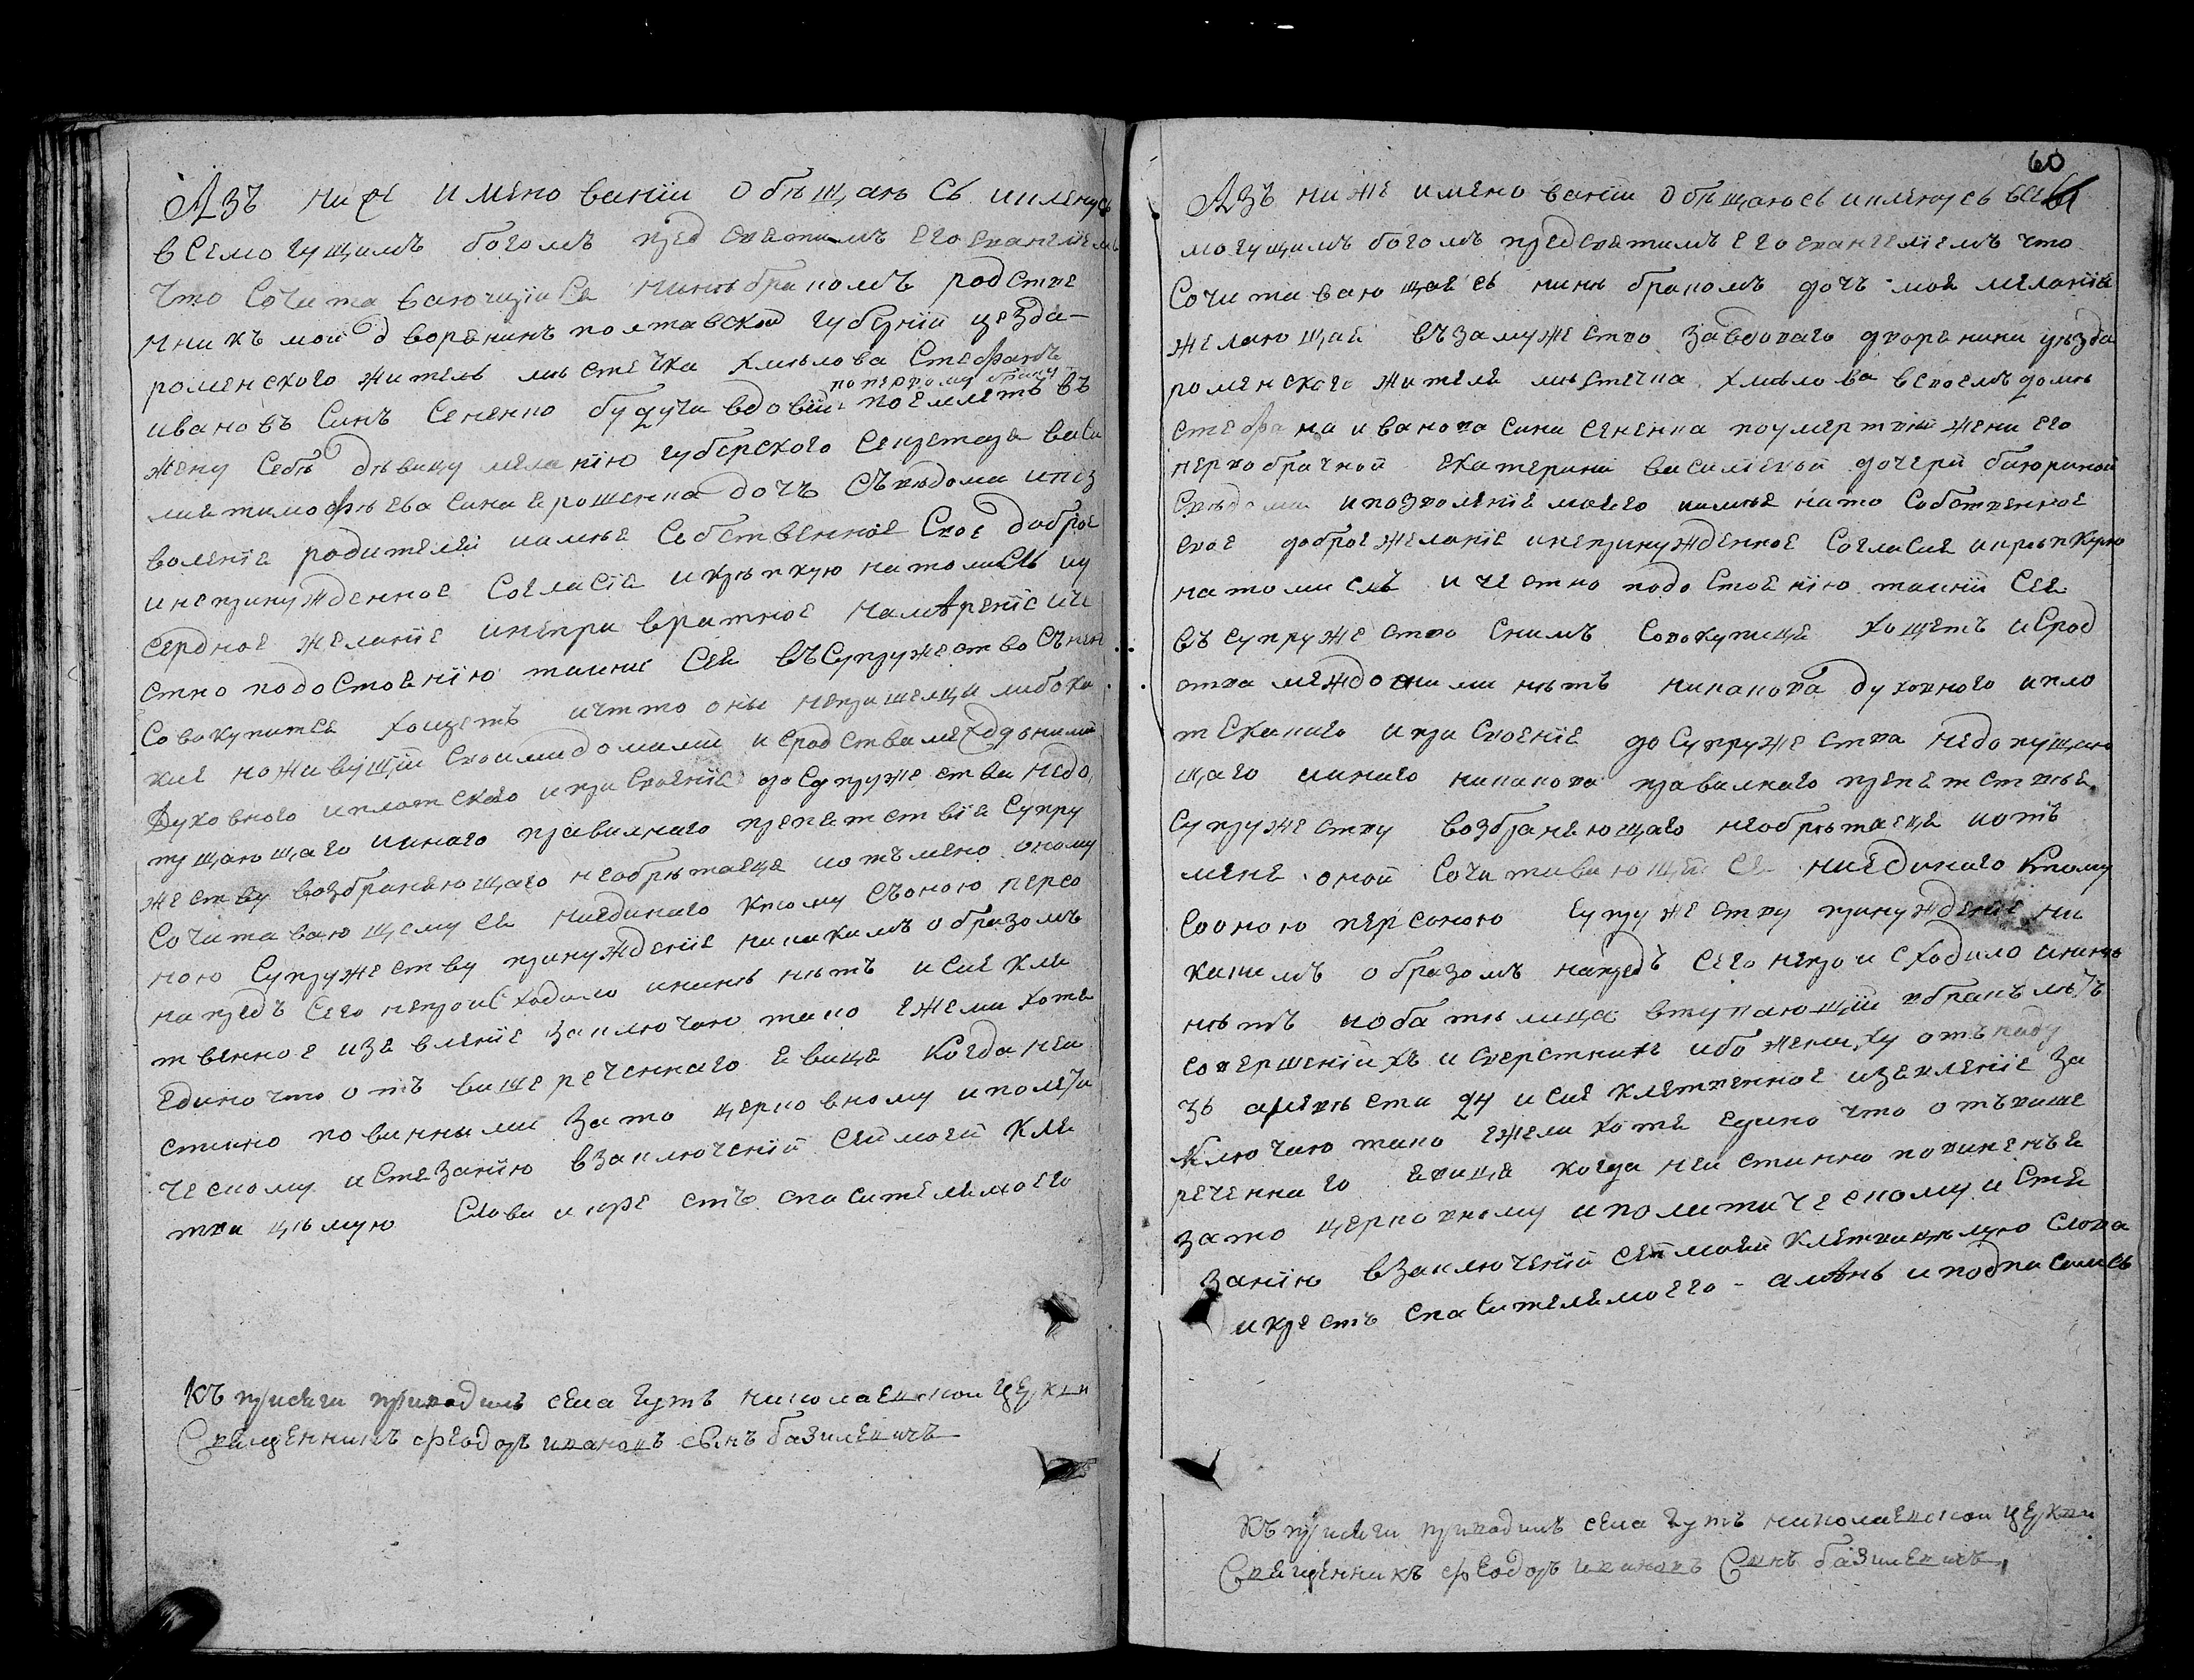 Азъ ниже имено ваніи обѣщаюсь икленусь
всемогущимъ богомъ пред святимъ его евангеліемъ
что сочитаваючіися нинѣ бракомъ родстве
нникъ мой дворянинъ полтавской губерніи уезда
роменского житель мѣстечка хмѣлова Стефанъ
по первому браку
ивановъ синъ Сененко будучи вдовій поемлетъ въ
жену себѣ дѣвицу меланію губерского секретаря васи
лия тимофѣева сина ярошенка дочъ съ вѣдома и поз
воленія родителей имѣя собственное свое доброе
и непринужденное согласіе и крѣпкую на то мисль и у
сердное желаніе и непри вратное намѣреніе и че
стно подостоянію таини сея въ супружество съ нею
совокупится хощетъ и что они непришелци либо ка
кия но живущіи своими домами и сродства между ними
духовного и плотского и при своенія до супружества недо
пущающаго и инаго правилнаго препятствія супру
жеству возбраняющаго необрѣтаеця и отъ мене оному
сочитавающемуся ниединаго к тому съ оною персо
ною супружеству принужденіе ни какимъ образомъ
напредъ сего непроисходило и нинѣ нѣтъ и сие кля
твенное изявленіе заключаю тако ежели хотя
едино что отъ вишереченнаго явиця когда неи
стинно повинными за то церковному и полити
ческому истязанію в заключеній сей моей кля
тви цѣлую слова и крестъ спасителя моего
къ присяги приводилъ села гутъ николаевской церкви
Священникъ феодоръ ивановъ сынъ базилевичъ
60
Азъ ниже имено ваніи обѣщаюсь икленусь все
могущимъ богомъ пред святимъ его евангеліемъ что
сочитавающаясь нинѣ бракомъ дочъ моя меланія
желающая въ замужество за вдоваго дворянина уѣзда
роменского жителя мѣстечка хмѣлова в своемъ домѣ
стефана иванова сина сененка по умертвіи жени его
первобрачной екатерини василіевой дочери баюриной
свѣдома и позволенія моего имѣя на то собственное
свое доброе желаніе и непринужденное согласия и крѣпкую
на то мисль и честно подостоянію таини сея
въ супружество снимъ совокупиця хощетъ и срод
ства междо оними нѣтъ никакова духовного и пло
тсканого и при своенія до супружества недопущаю
щаго и инаго никакова правилнаго препятствія
супружеству возбраняющаго необрѣтаеця и отъ
мене оной сочитавающейся ниединаго к тому
соонюю персоною супружеству принужденія ни
какимъ образомъ напредъ сего непроисходило и нинѣ
нѣтъ и оба ти лица вступающіи в бракъ лѣтъ
совершеній хъ и сверстнихъ ибо жениху отъ роду
36 а невѣсти 24 и сие клятвенное изявленіе за
ключаю тако ежели хотя едино что отъ више
реченнаго явиця когда неистинно повиненъ я
за то церковному и политическому истя
занію в заключеній сей моей клятви цѣлую слова
и крестъ спасителя моего - аминь и подписалисъ
къ присяги приводилъ села гутъ николаевской церкви
Священникъ феодоръ ивановъ Синъ базилевичъ